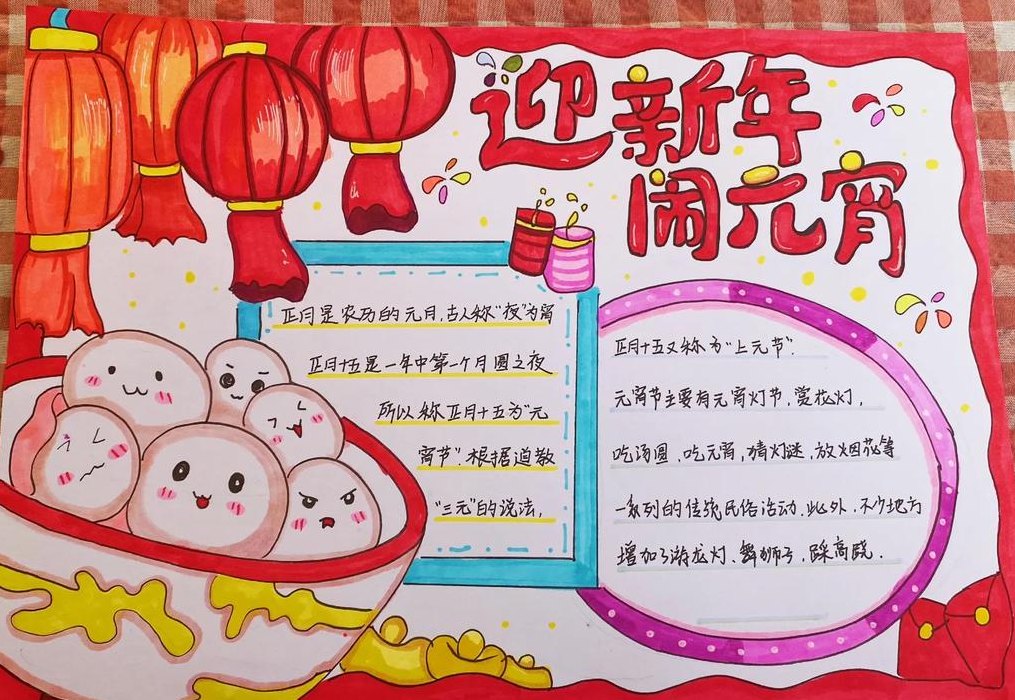 迎新年
闹元宵
正月是农历的元月,古人称"夜"为宵
正月十五是一年中第一个月圆之夜
所以称正月十五为"元
宵节".根据道教
"三元"的说法,
正月十五又称为"上元节".
元宵节主要有元宵灯节,赏花灯,
吃汤圆,吃元宵,猜灯谜,放烟花等
一系列的传统民俗活动.此外,不少地方
增加了游龙灯,舞狮子,踩高跷.